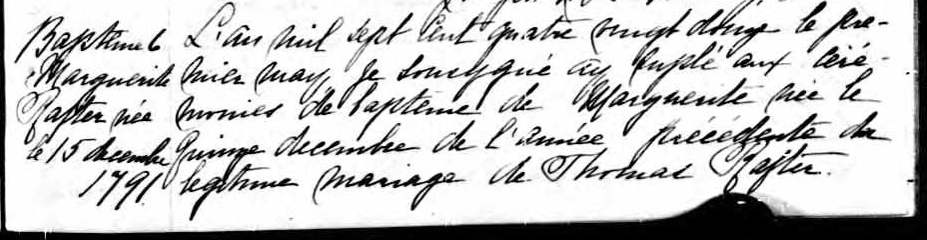 Baptême L'an mil sept cent quatre vingt douze le pre-
Marguerite mier may, Je soussigné ay suplé aux céré-
Rafter née monies de baptême de Marguerite née le
le 15 decembre quinze decembre de l'année précédente du
1791 legitime mariage de Thomas Rafter.